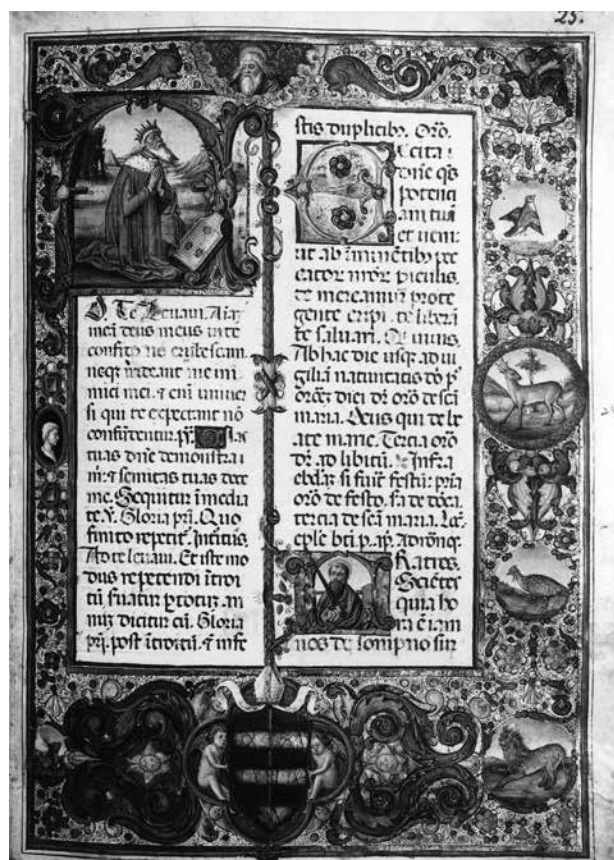 25.
D. Te Levavi. Aiaʒ
meā deus meus in te
confido nō erubescam.
neqʒ irrideant me ini
mici mei. ⁊ eni univer
si qui te expectant nō
confūdentur. p̄s.
tuas dn̄e demonstra i
m̄. ⁊ semitas tuas doce
me. Sequitur īmedia
te. V. Gloria pr̄i. Quo
finito repetit᷑. Introitus.
Ad te levavi. Et iste mo
dus repetendi ītroi
tū ẜuatur ꝑ totuʒ an
nuʒ dicitur cū. Gloria
pr̄i. post ītroitū. ⁊ infe
stis duplicibʒ. Orō.
Excita
dn̄e qs̄
potenci
am tuā
et veni:
ut ab iminētibʒ pec
catoꝝ nr̄oꝝ piculis.
te mereamur prote
gente eripi. te liberā
te salvari. Qui vivis.
Ab hac die usqʒ ad vi
giliā nativitatis dō pꝰ
orōeʒ diei dr̄ orō de scā
maria. Deus qui de be
ate marie. Tercia orō
dr̄ ad libitū. Infra
ebdaʒ si fuit festū: p̄ria
orō de festo.
tercia de scā maria. Lec̄.
eplē bti p. ap. Ad romāqʒ.
Fratres.
Scietes
quia ho
ra ē iam
nos de sompno sur